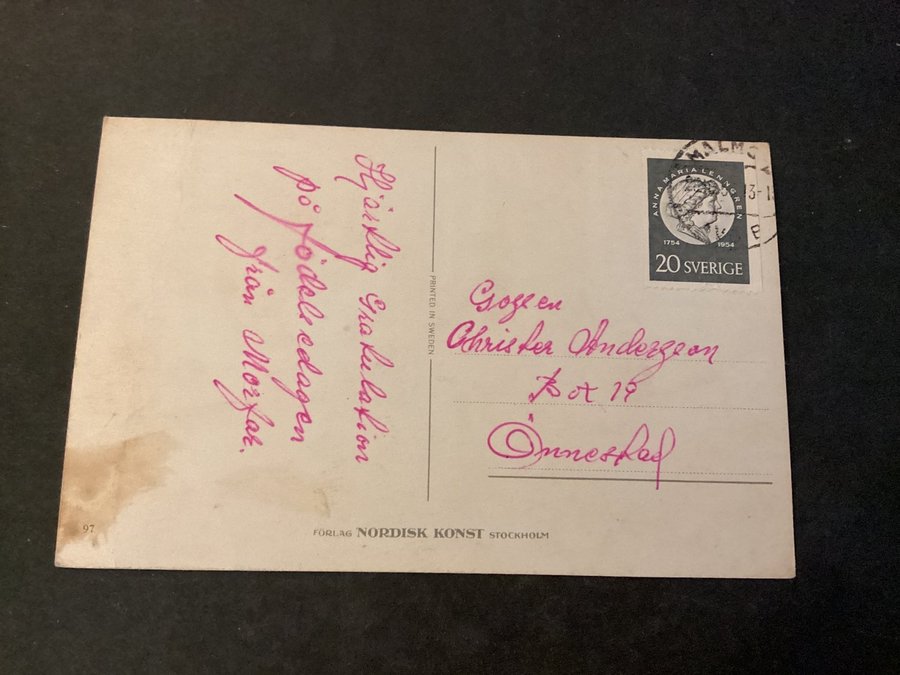 Hjärtlig Gratulation
på födelsedagen
från Morfar.
PRINTED IN SWEDEN
MALMÖ
ANNA MARIA LENNGREN
1754 1954
20 SVERIGE
Christer Andersson
Box 19
Önnestad
97
FÖRLAG NORDISK KONST STOCKHOLM